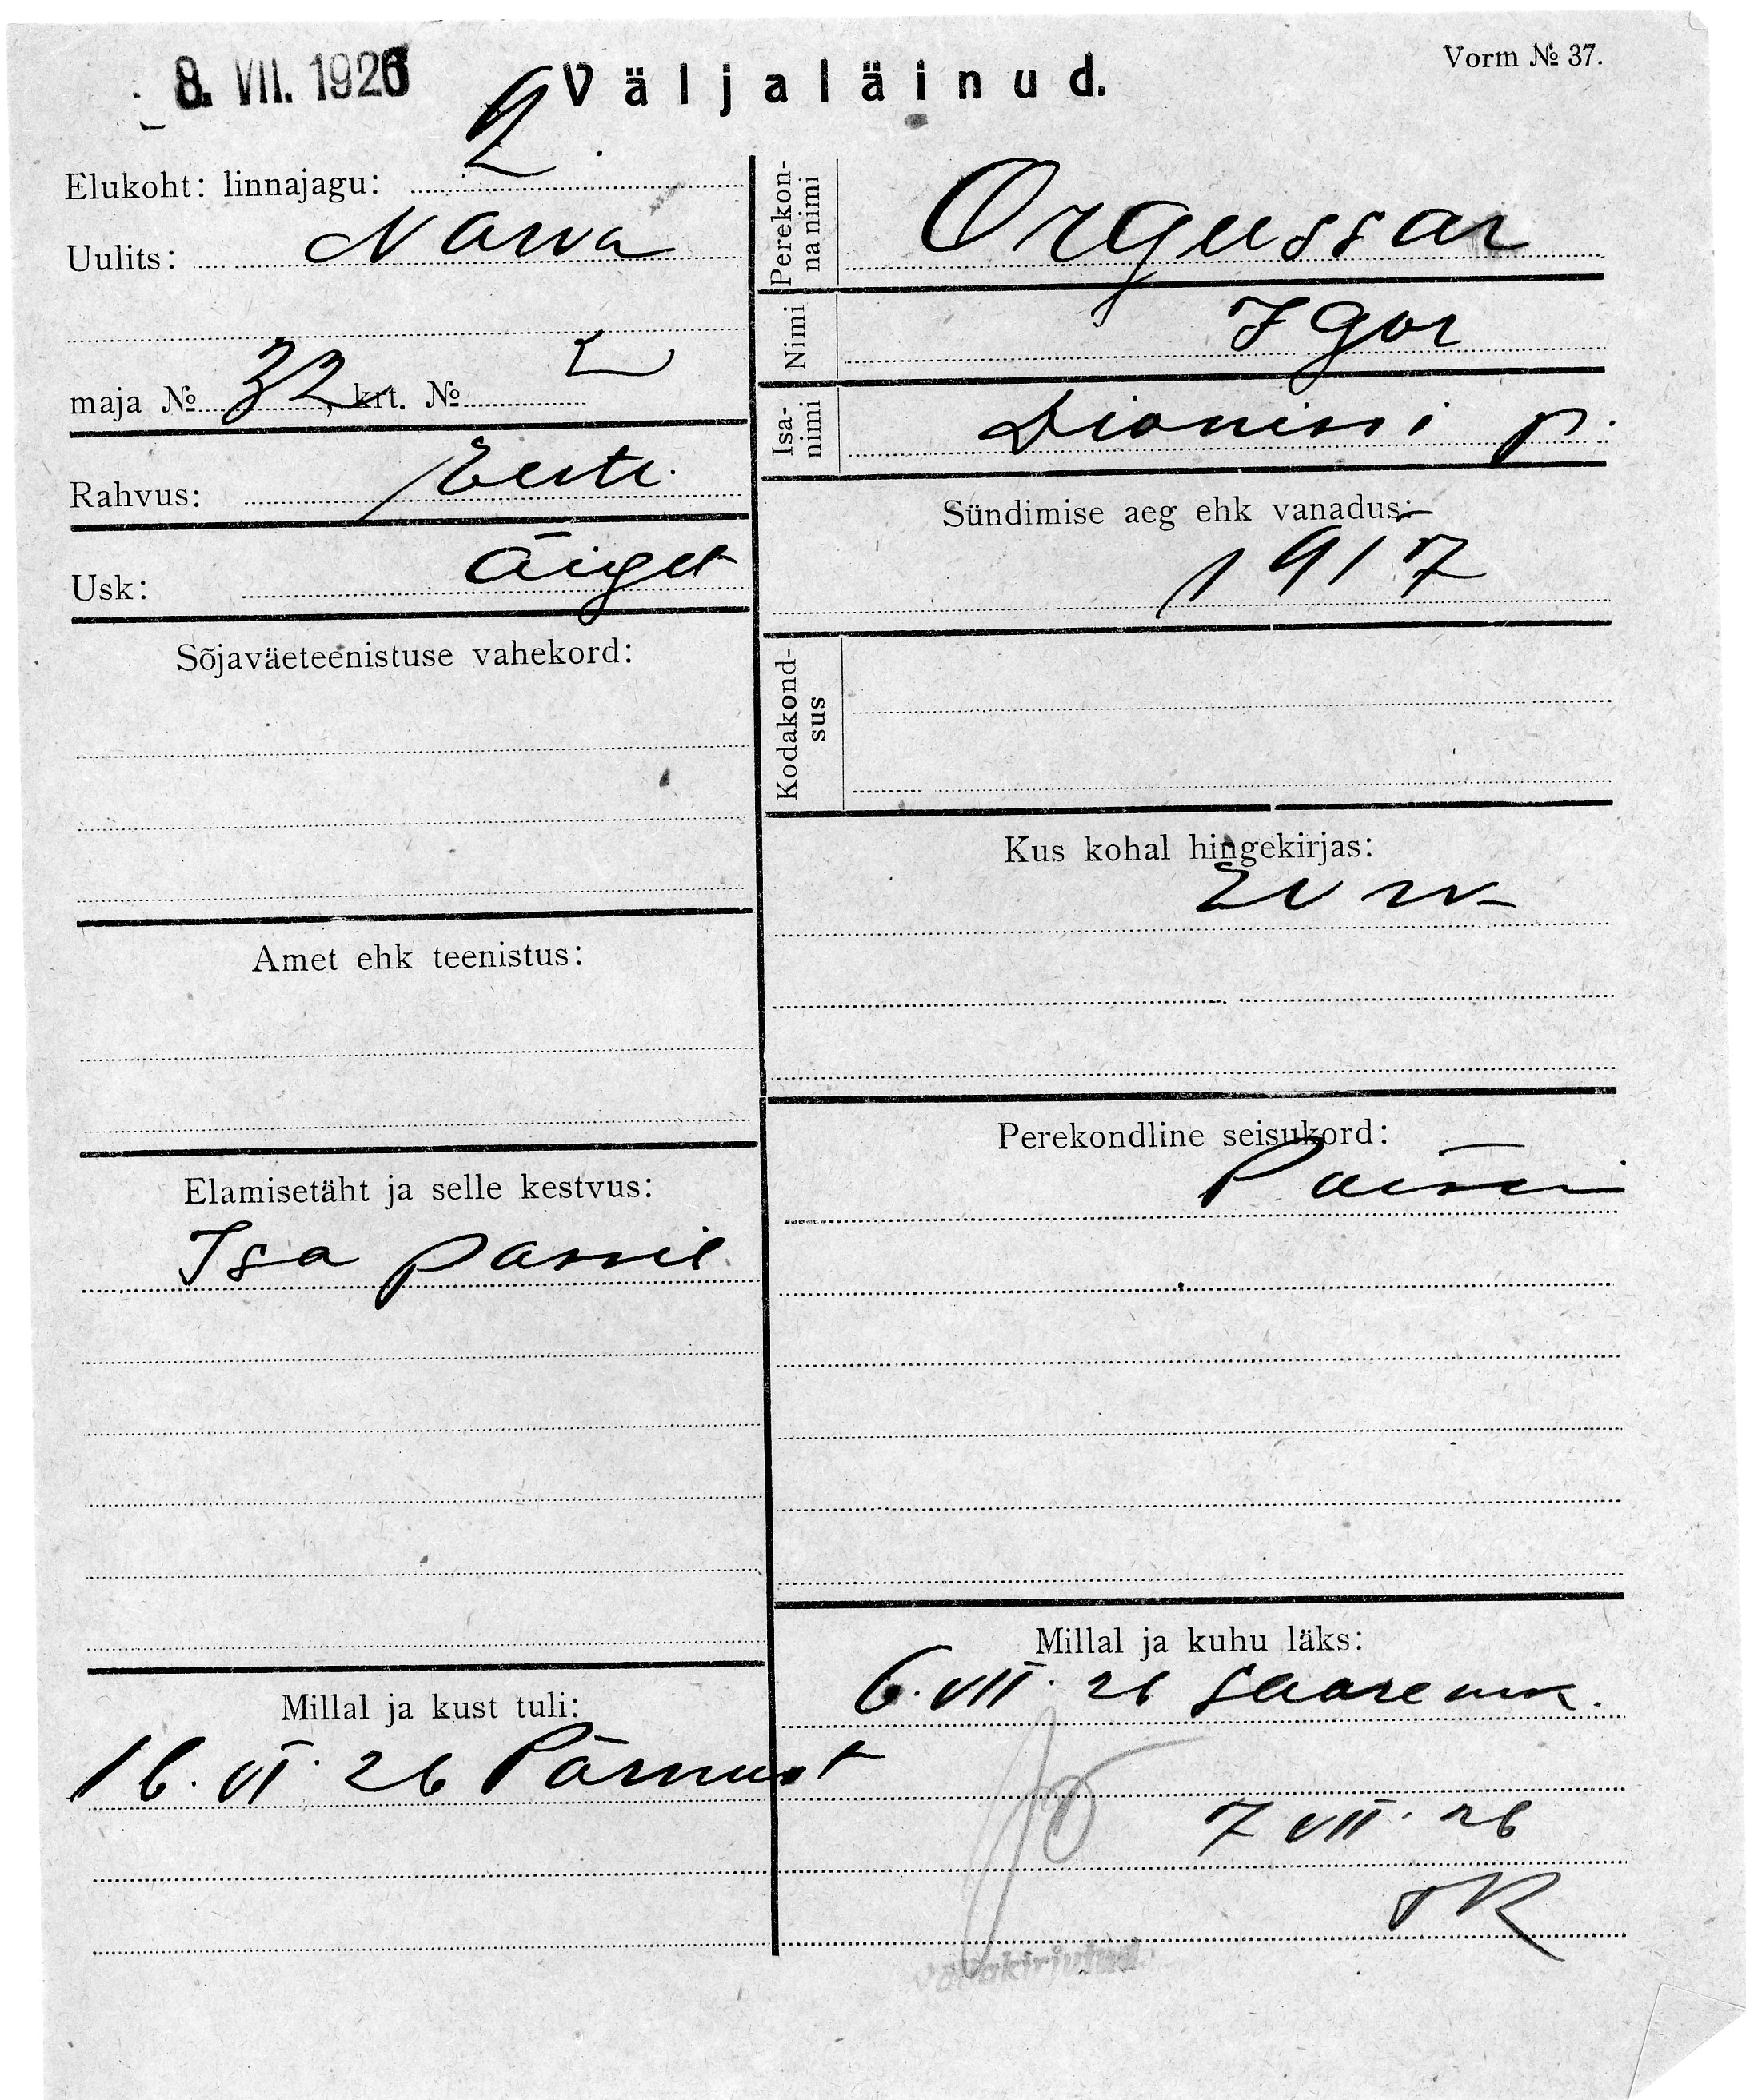 8. VII. 1926
Väljaläinud.
Vorm № 37.
Elukoht: linnajagu: 2.
Uulits: Narva
maja № 32, krt. № 2
Rahvus: Eesti.
Usk: Õiget
Sõjaväeteenistuse vahekord:
Amet ehk teenistus:
Elamisetäht ja selle kestvus:
Isa passil.
Millal ja kust tuli:
16. VI. 26 Pärnust
Perekonna nimi Orgussar
Nimi Igor
Isa-nimi Dionissi p.
Sündimise aeg ehk vanadus:
1917
Kodakond-
sus
Kus kohal hingekirjas:
Perekondline seisukord:
Millal ja kuhu läks:
6. VII. 26 Saarem.
7 VII. 26